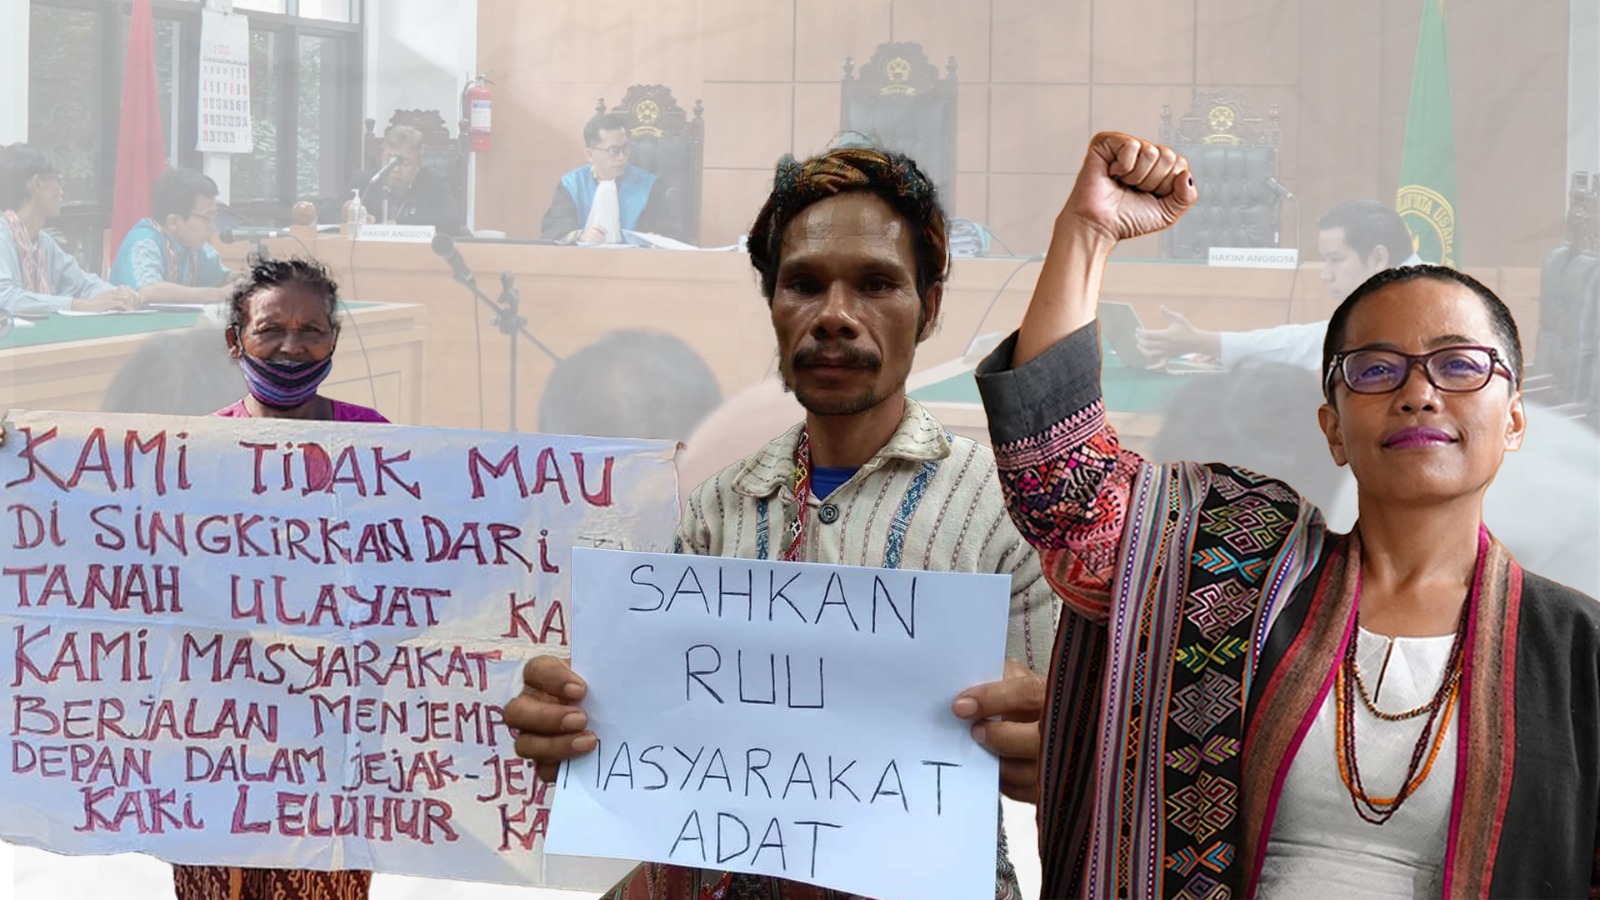 KAMI TIDAK MAU
DI SINGKIRKAN DARI
TANAH ULAYAT KA
KAMI MASYARAKAT
BERJALAN MENJEMP
DEPAN DALAM JEJAK-JEJA
KAKI LELUHUR KA
SAHKAN
RUU
MASYARAKAT
ADAT
HAKIM ANGGOTA
HAKIM ANGGOTA